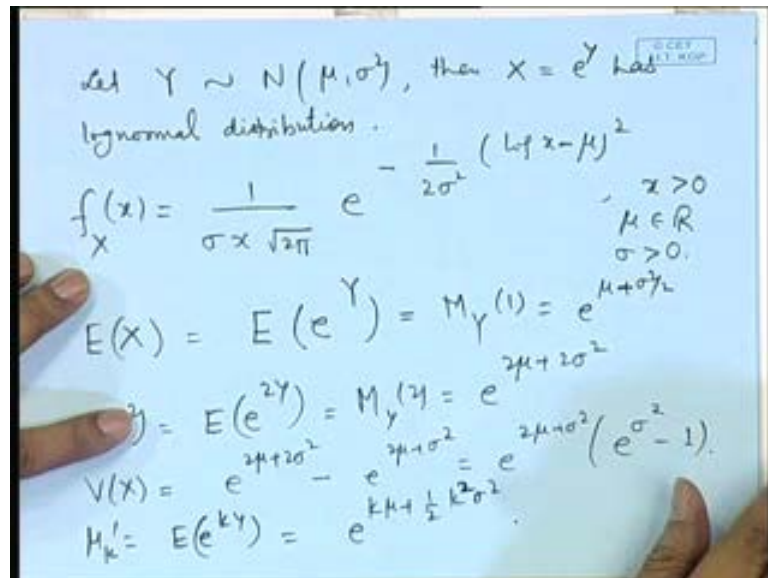 Let Y ~ N(μ, σ²), then X = e^Y has
© CET
I.I.T. KGP
lognormal distribution.
f_X(x) = 1/(σ x √2π) e^{- 1/(2σ²) (log x - μ)²}, x > 0
μ ∈ R
σ > 0.
E(X) = E(e^Y) = M_Y(1) = e^{μ+σ²/2}
²) = E(e^{2Y}) = M_Y(2) = e^{2μ+2σ²}
V(X) = e^{2μ+2σ²} - e^{2μ+σ²} = e^{2μ+σ²}(e^{σ²} - 1).
μ_k' = E(e^{kY}) = e^{kμ + ½ k²σ²}.